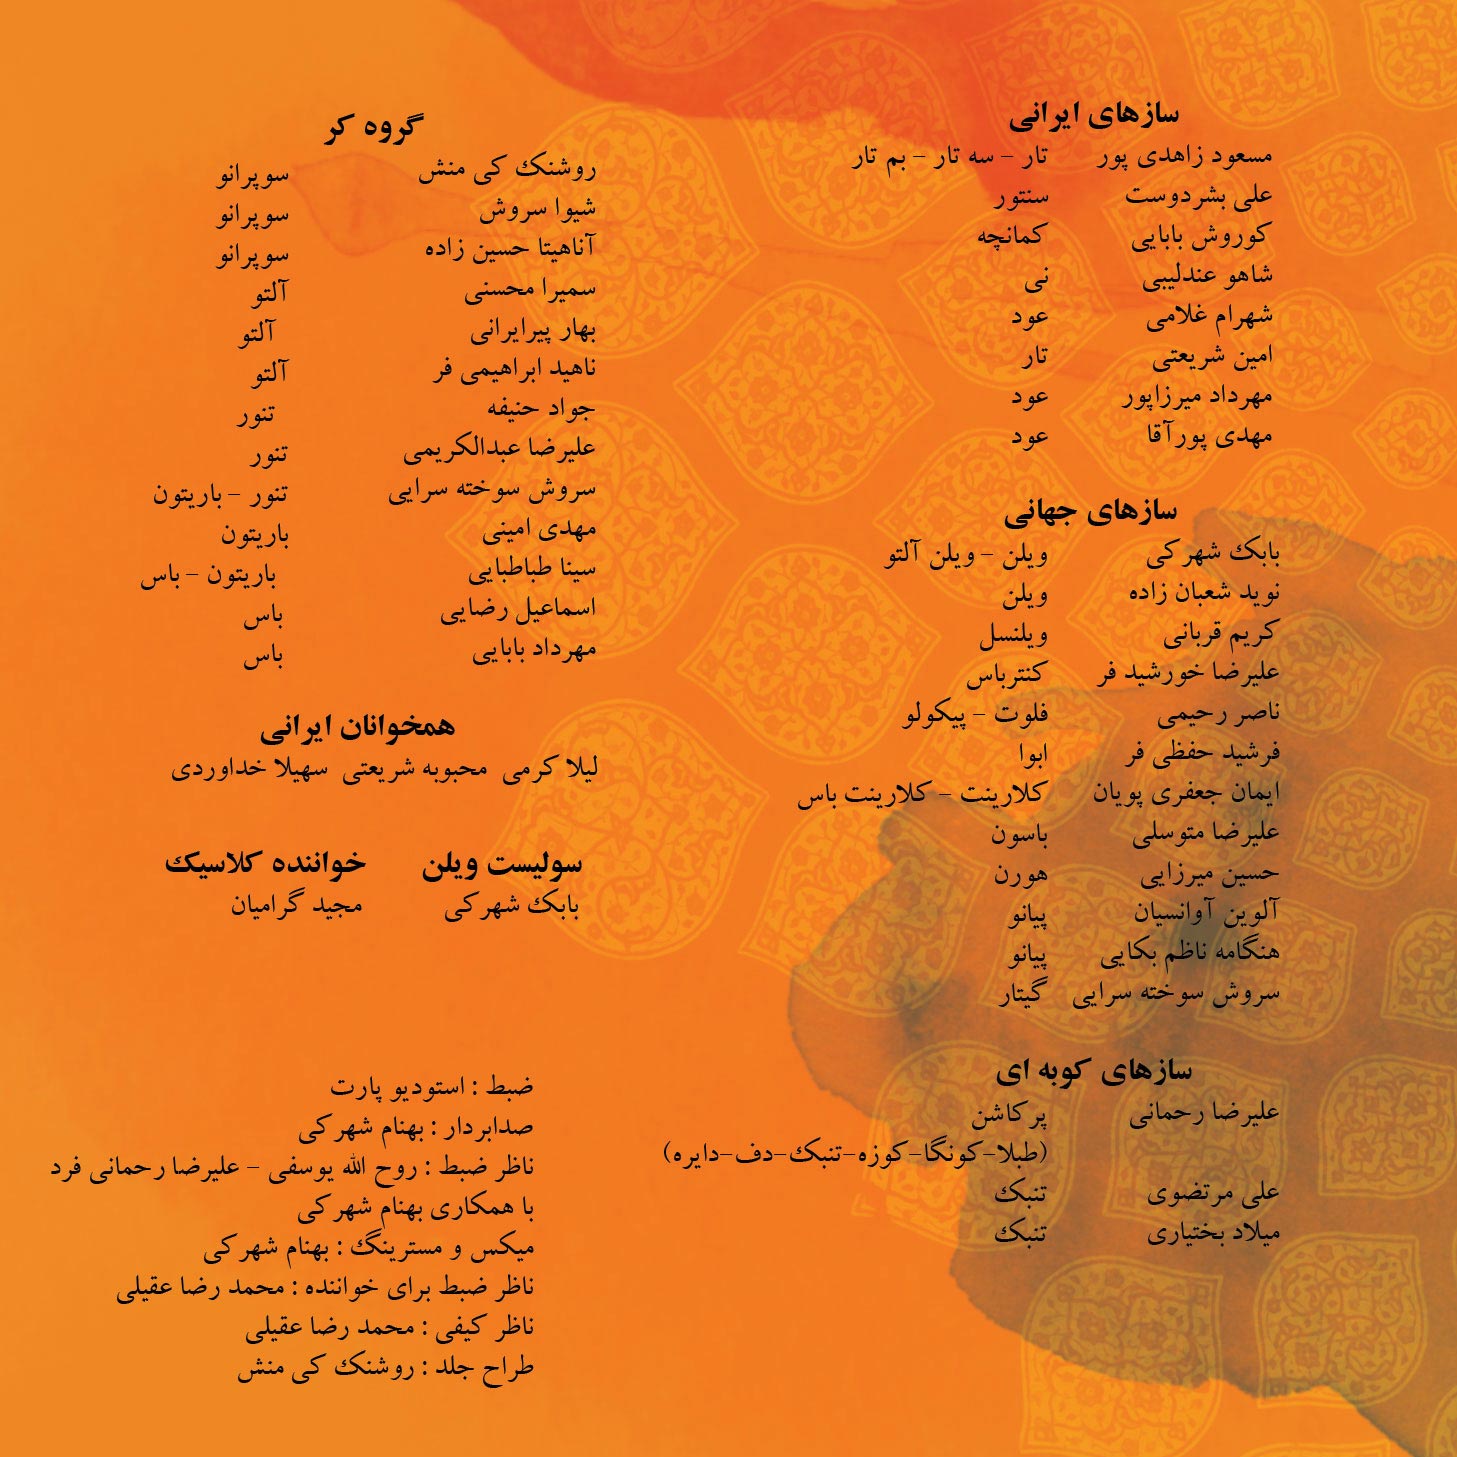 سازهای ایرانی
مسعود زاهدی پور تار - سه تار - بم تار
علی بشردوست سنتور
کوروش بابایی کمانچه
شاهو عندلیبی نی
شهرام غلامی عود
امین شریعتی تار
مهرداد میرزاپور عود
مهدی پورآقا عود
سازهای جهانی
بابک شهرکی ویلن - ویلن آلتو
نوید شعبان زاده ویلن
کریم قربانی ویلنسل
علیرضا خورشید فر کنترباس
ناصر رحیمی فلوت - پیکولو
فرشید حفظی فر ابوا
ایمان جعفری پویان کلارینت - کلارینت باس
علیرضا متوسلی باسون
حسین میرزایی هورن
آلوین آوانسیان پیانو
هنگامه ناظم بکایی پیانو
سروش سوخته سرایی گیتار
سازهای کوبه ای
علیرضا رحمانی پرکاشن
(طبلا-کونگا-کوزه-تنبک-دف-دایره)
علی مرتضوی تنبک
میلاد بختیاری تنبک
گروه کر
روشنک کی منش سوپرانو
شیوا سروش سوپرانو
آناهیتا حسین زاده سوپرانو
سمیرا محسنی آلتو
بهار پیرایرانی آلتو
ناهید ابراهیمی فر آلتو
جواد حنیفه تنور
علیرضا عبدالکریمی تنور
سروش سوخته سرایی تنور - باریتون
مهدی امینی باریتون
سینا طباطبایی باریتون - باس
اسماعیل رضایی باس
مهرداد بابایی باس
همخوانان ایرانی
لیلا کرمی محبوبه شریعتی سهیلا خداوردی
سولیست ویلن خواننده کلاسیک
بابک شهرکی مجید گرامیان
ضبط : استودیو پارت
صدابردار : بهنام شهرکی
ناظر ضبط : روح الله یوسفی - علیرضا رحمانی فرد
با همکاری بهنام شهرکی
میکس و مسترینگ : بهنام شهرکی
ناظر ضبط برای خواننده : محمد رضا عقیلی
ناظر کیفی : محمد رضا عقیلی
طراح جلد : روشنک کی منش